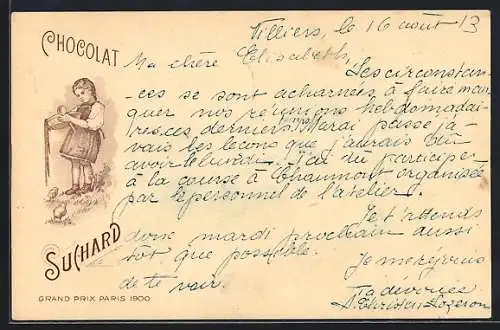 CHOCOLAT
Villiers, le 16 août 13
Ma chère Elisabeth,
Les circonstan-
ces se sont acharnées à faire man-
quer nos réunions hebdomadai-
res ces derniers temps. Mardi passé j'a-
vais les leçons que j'aurais dû
avoir le lundi. J'ai dû participer
à la course à Chaumont organisée
par le personnel de l'atelier.
Je t'attends
donc mardi prochain aussi
tôt que possible.
Je me réjouis
de te voir.
Ta dévouée
SUCHARD
GRAND PRIX PARIS 1900